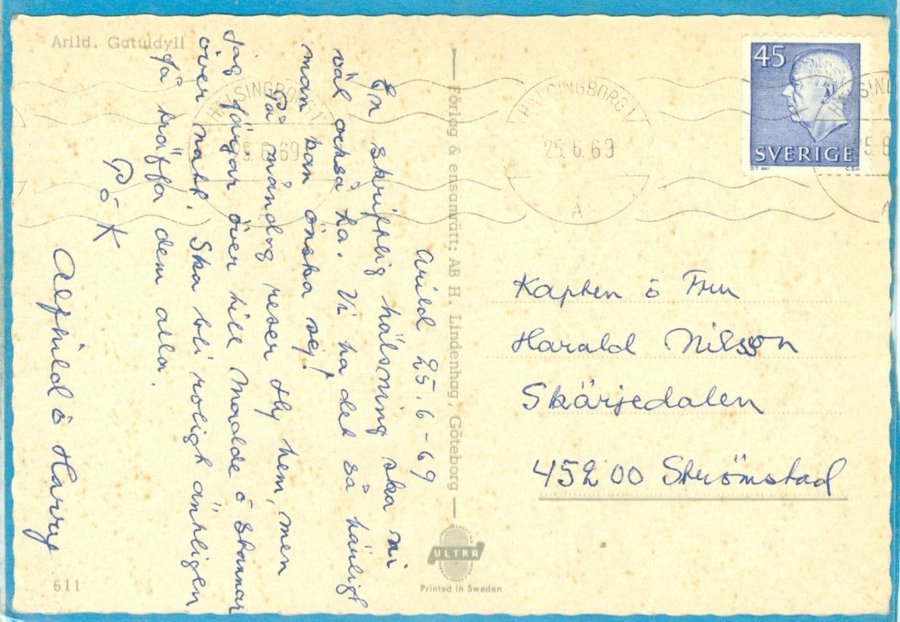 Arild. Gatuidyll
Arild 25.6-69
En skriftlig hälsning ska ni
väl också ha. Vi ha det så härligt
man kan önska sej!
På måndag reser Hy hem, men
jag färjar över till Maalde o stannar
över natt. Ska bli roligt äntligen
få träffa dem alla.
P o K
Alfhild o Harry
611
Förlag & ensamrätt: AB H. Lindenhag, Göteborg
ULTRA
Printed in Sweden
HÄLSINGBORG 1
25.6.69
HÄLSINGBORG 1
25.6.69
A
45
SVERIGE
Kapten o Fru
Harald Nilsson
Skärjedalen
452 00 Strömstad